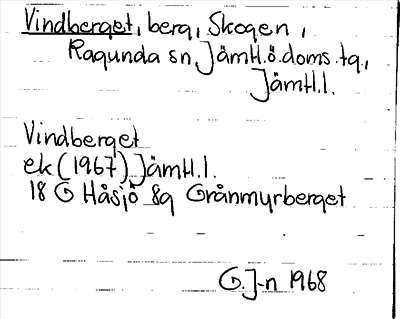 Vindberget, berg, Skogen,
Ragunda sn, Jämtl.ö.doms.tg.,
Jämtl.l.
Vindberget
ek (1967) Jämtl.l.
18 G Håsjö 8g Grånmyrberget
G.J-n 1968